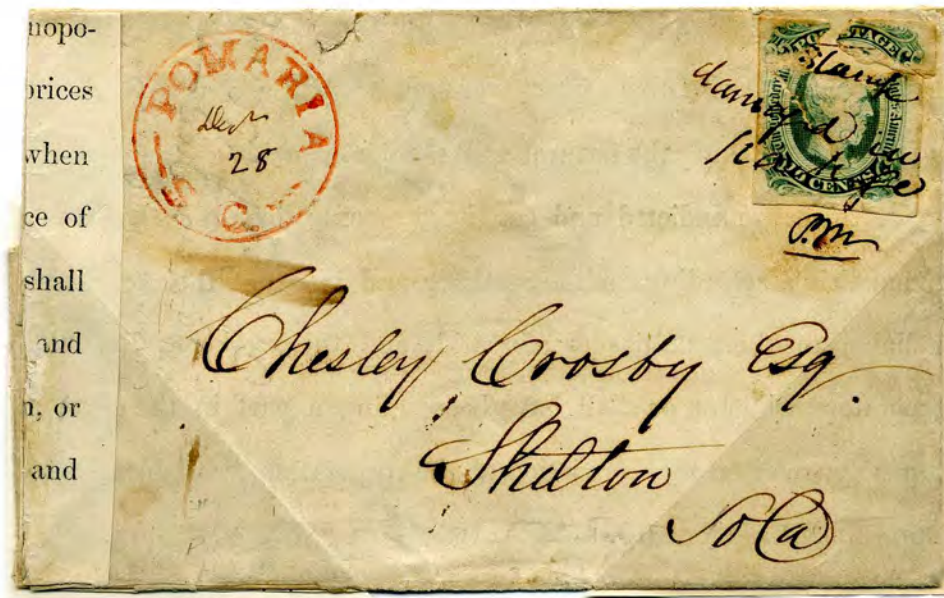 nopo-
prices
when
ce of
shall
and
n, or
and
POMARIA
S. C.
28
POSTAGE
TEN CENTS
Stamp
damaged in
P.M
Chesley Crosby Esq
Shelton
So Ca